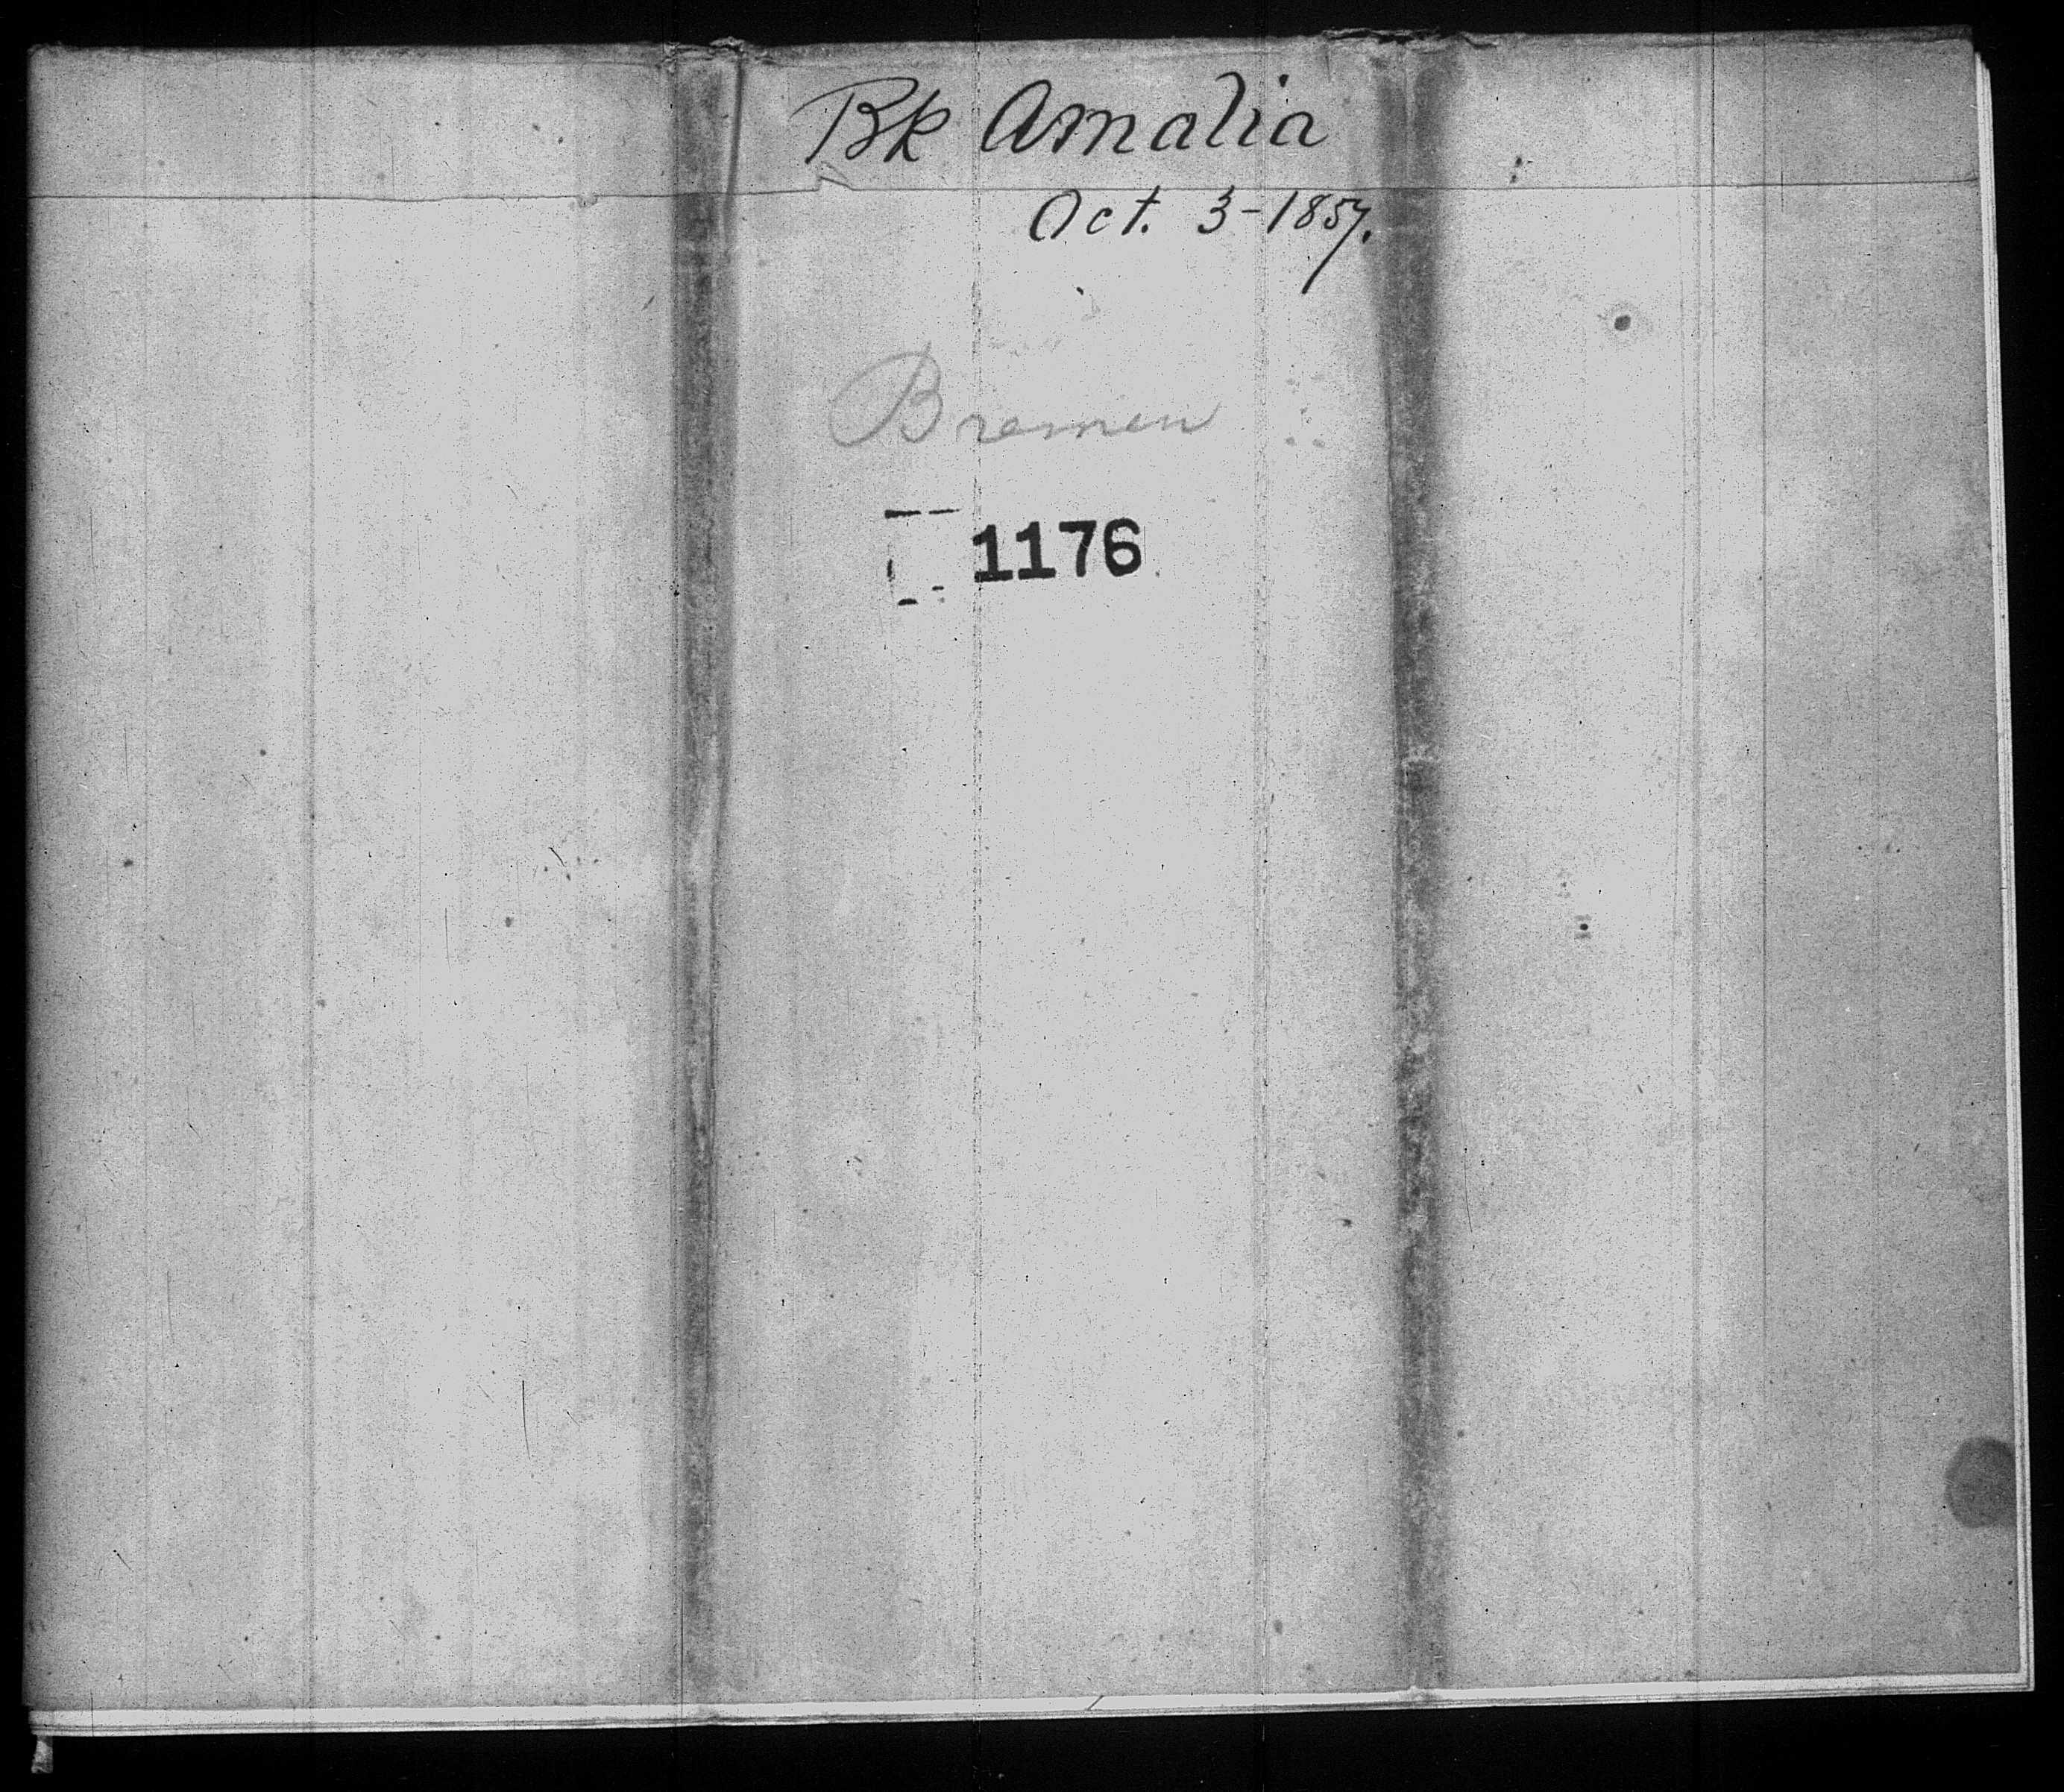 Bk Amalia
Oct. 3-1857.
Bremen
1176